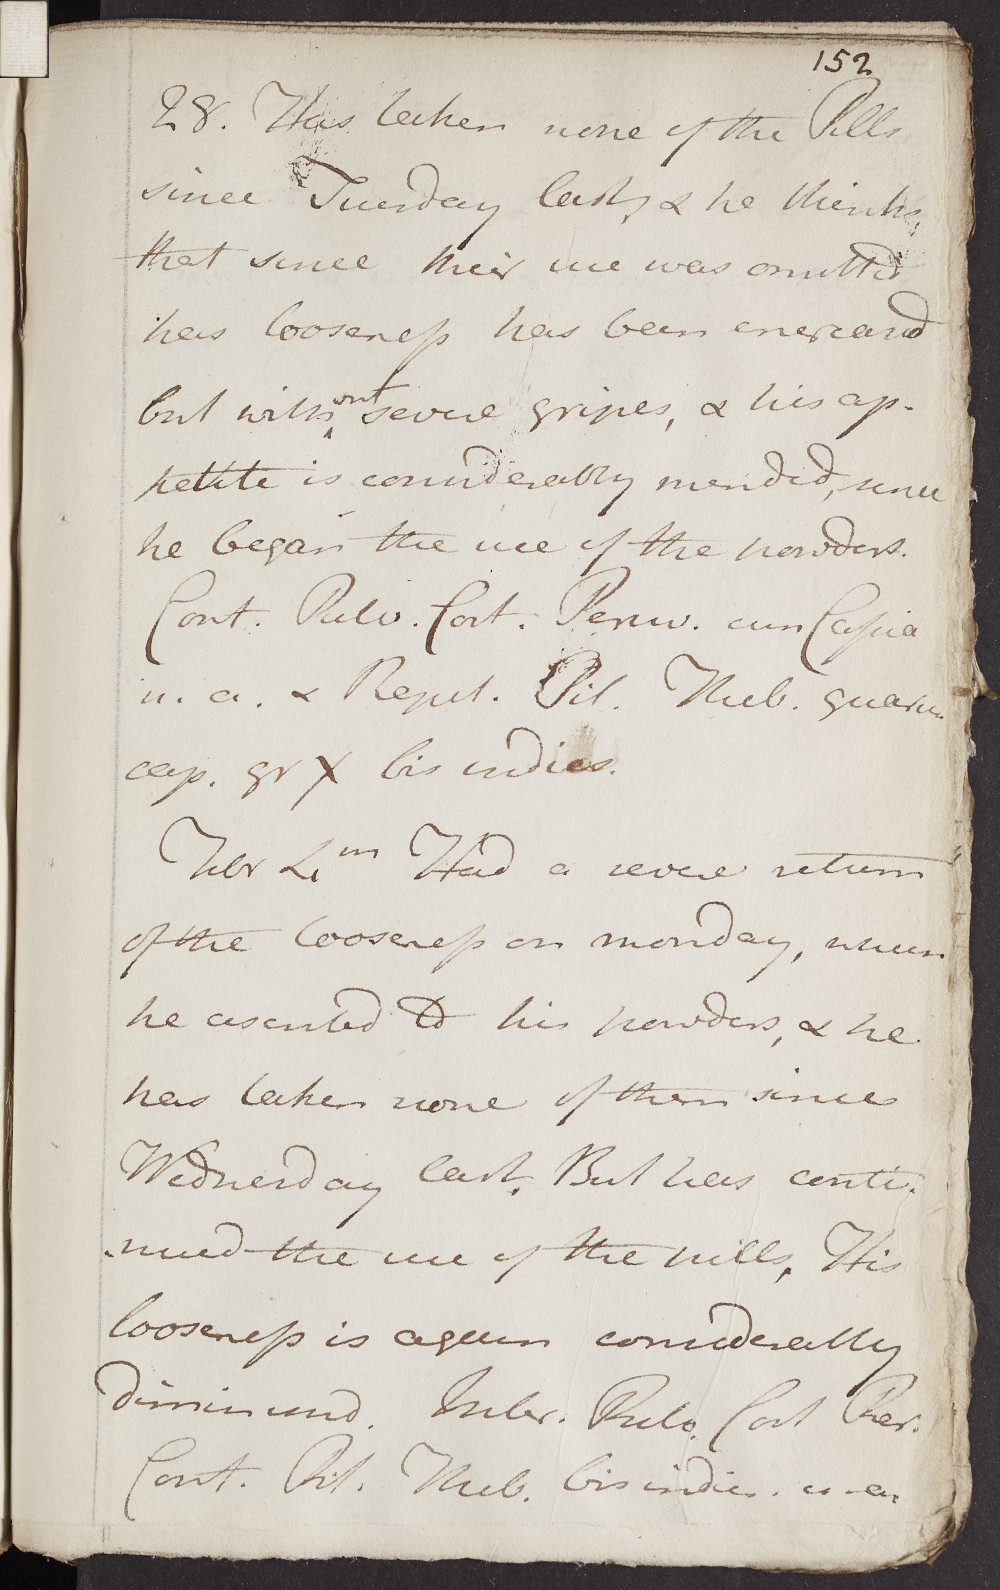 152
28. Has taken none of the Pills
since Tuesday last, & he thinks,
that since their use was omitted
his looseness has been encreased
but without severe gripes, & his ap-
petite is considerably mended, since
he began the use of the powders.
Cont. Pulv. Cort. Peruv. cum Cassia
u. a. & Repet. Pil. Theb. quarum
cap. gr X bis indies.
Febr 4th Had a severe return
of the looseness on monday, when
he ascribed to his powders, & he
has taken none of them since
Wednesday last. But has conti-
-nued the use of the pills, His
looseness is again considerably
diminished. Inter. Pulv. Cort Per.
Cont. Pil. Theb. bis indies. u. a.